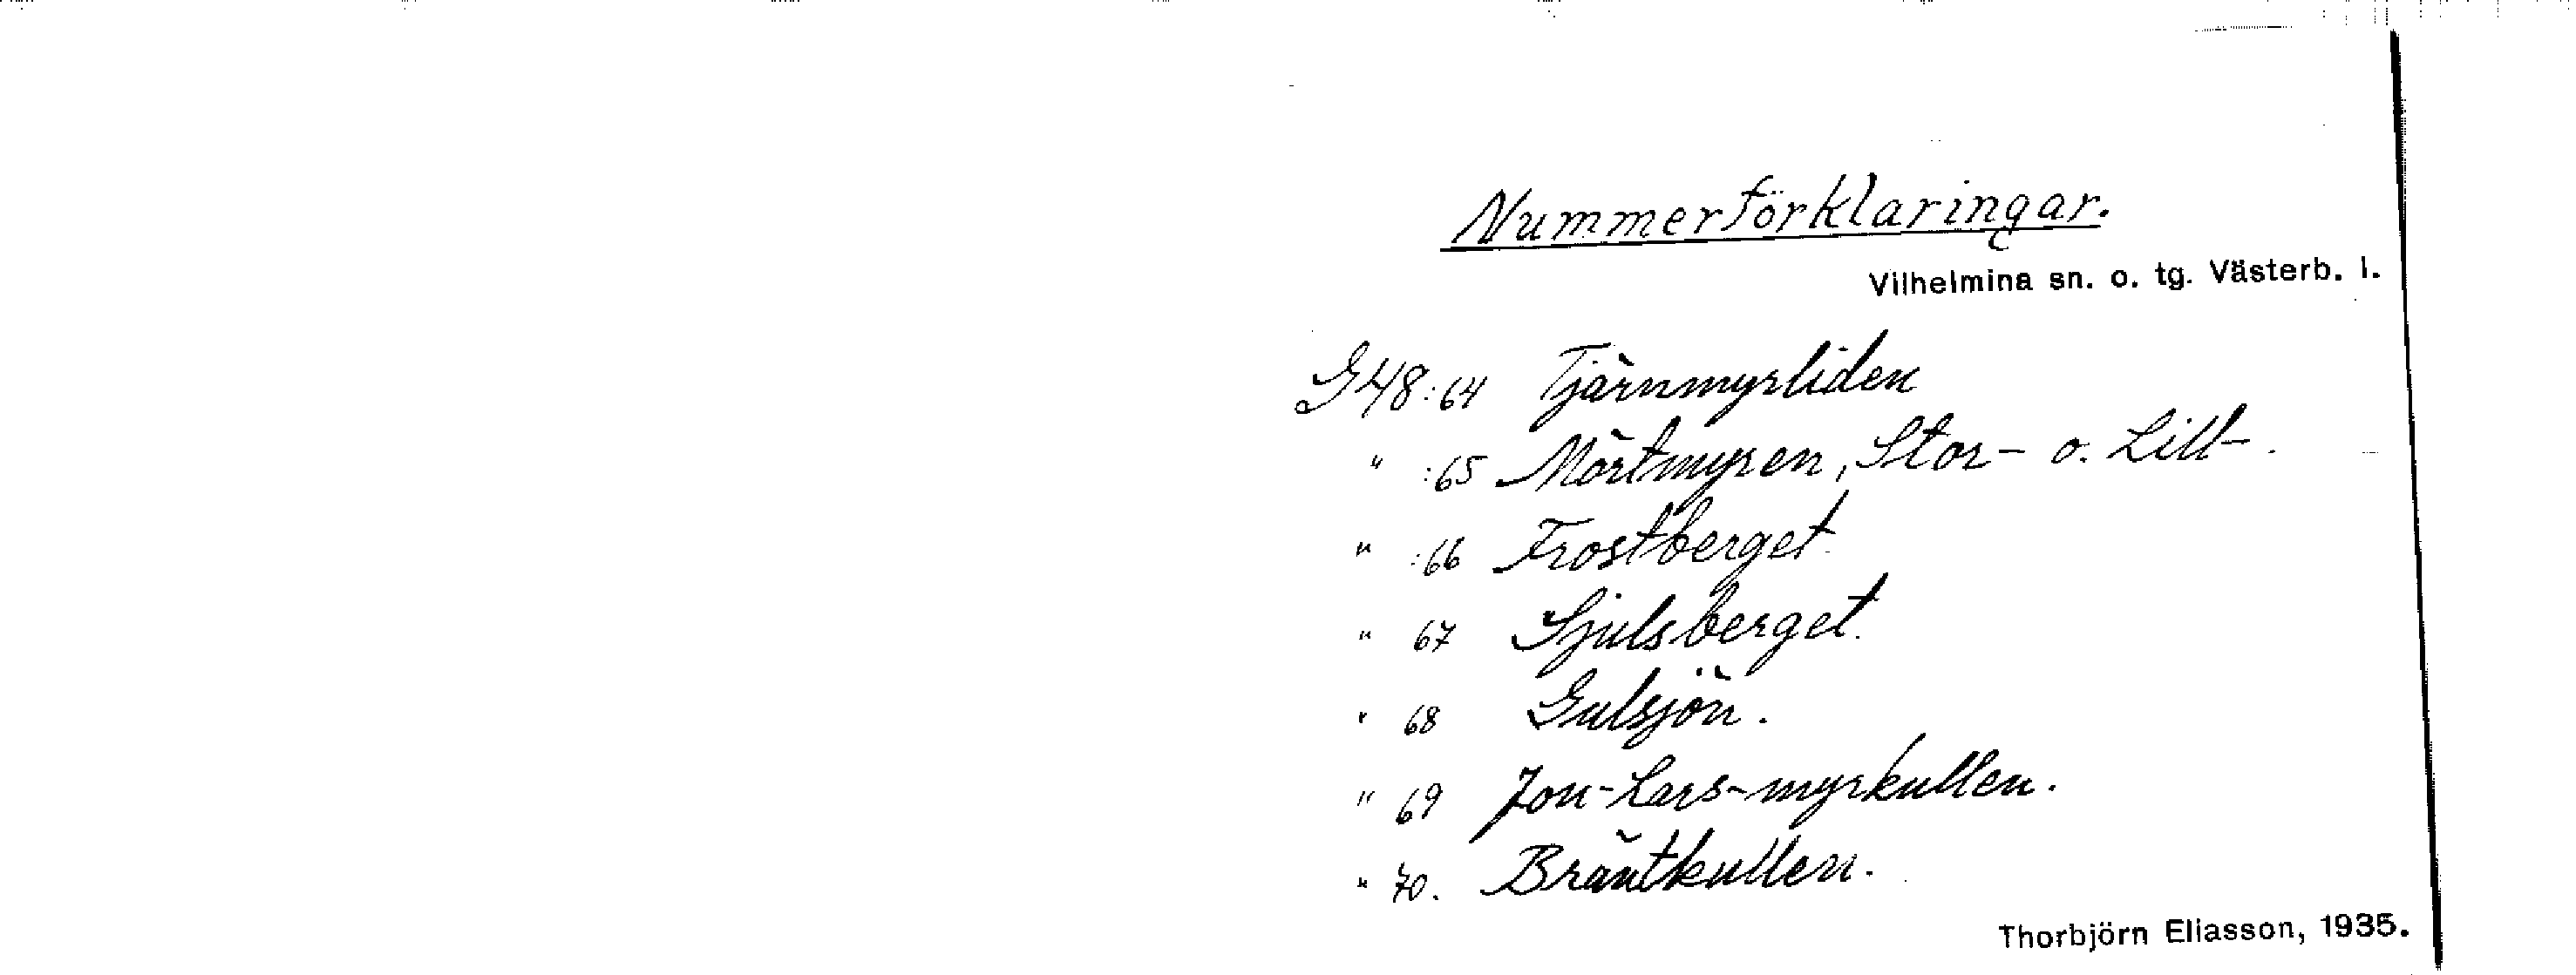 Nummerförklaringar.
Vilhelmina sn. o. tg. Västerb. l.
G48:64 Tjärnmyrliden
" :65 Mörtmyren, Stor- o. Lill-.
" :66 Frostberget
" 67 Sjulsberget.
" 68 Gulsjön.
" 69 Jon-Lars-myrkullen.
" 70. Bräntkullen.
Thorbjörn Eliasson, 1935.